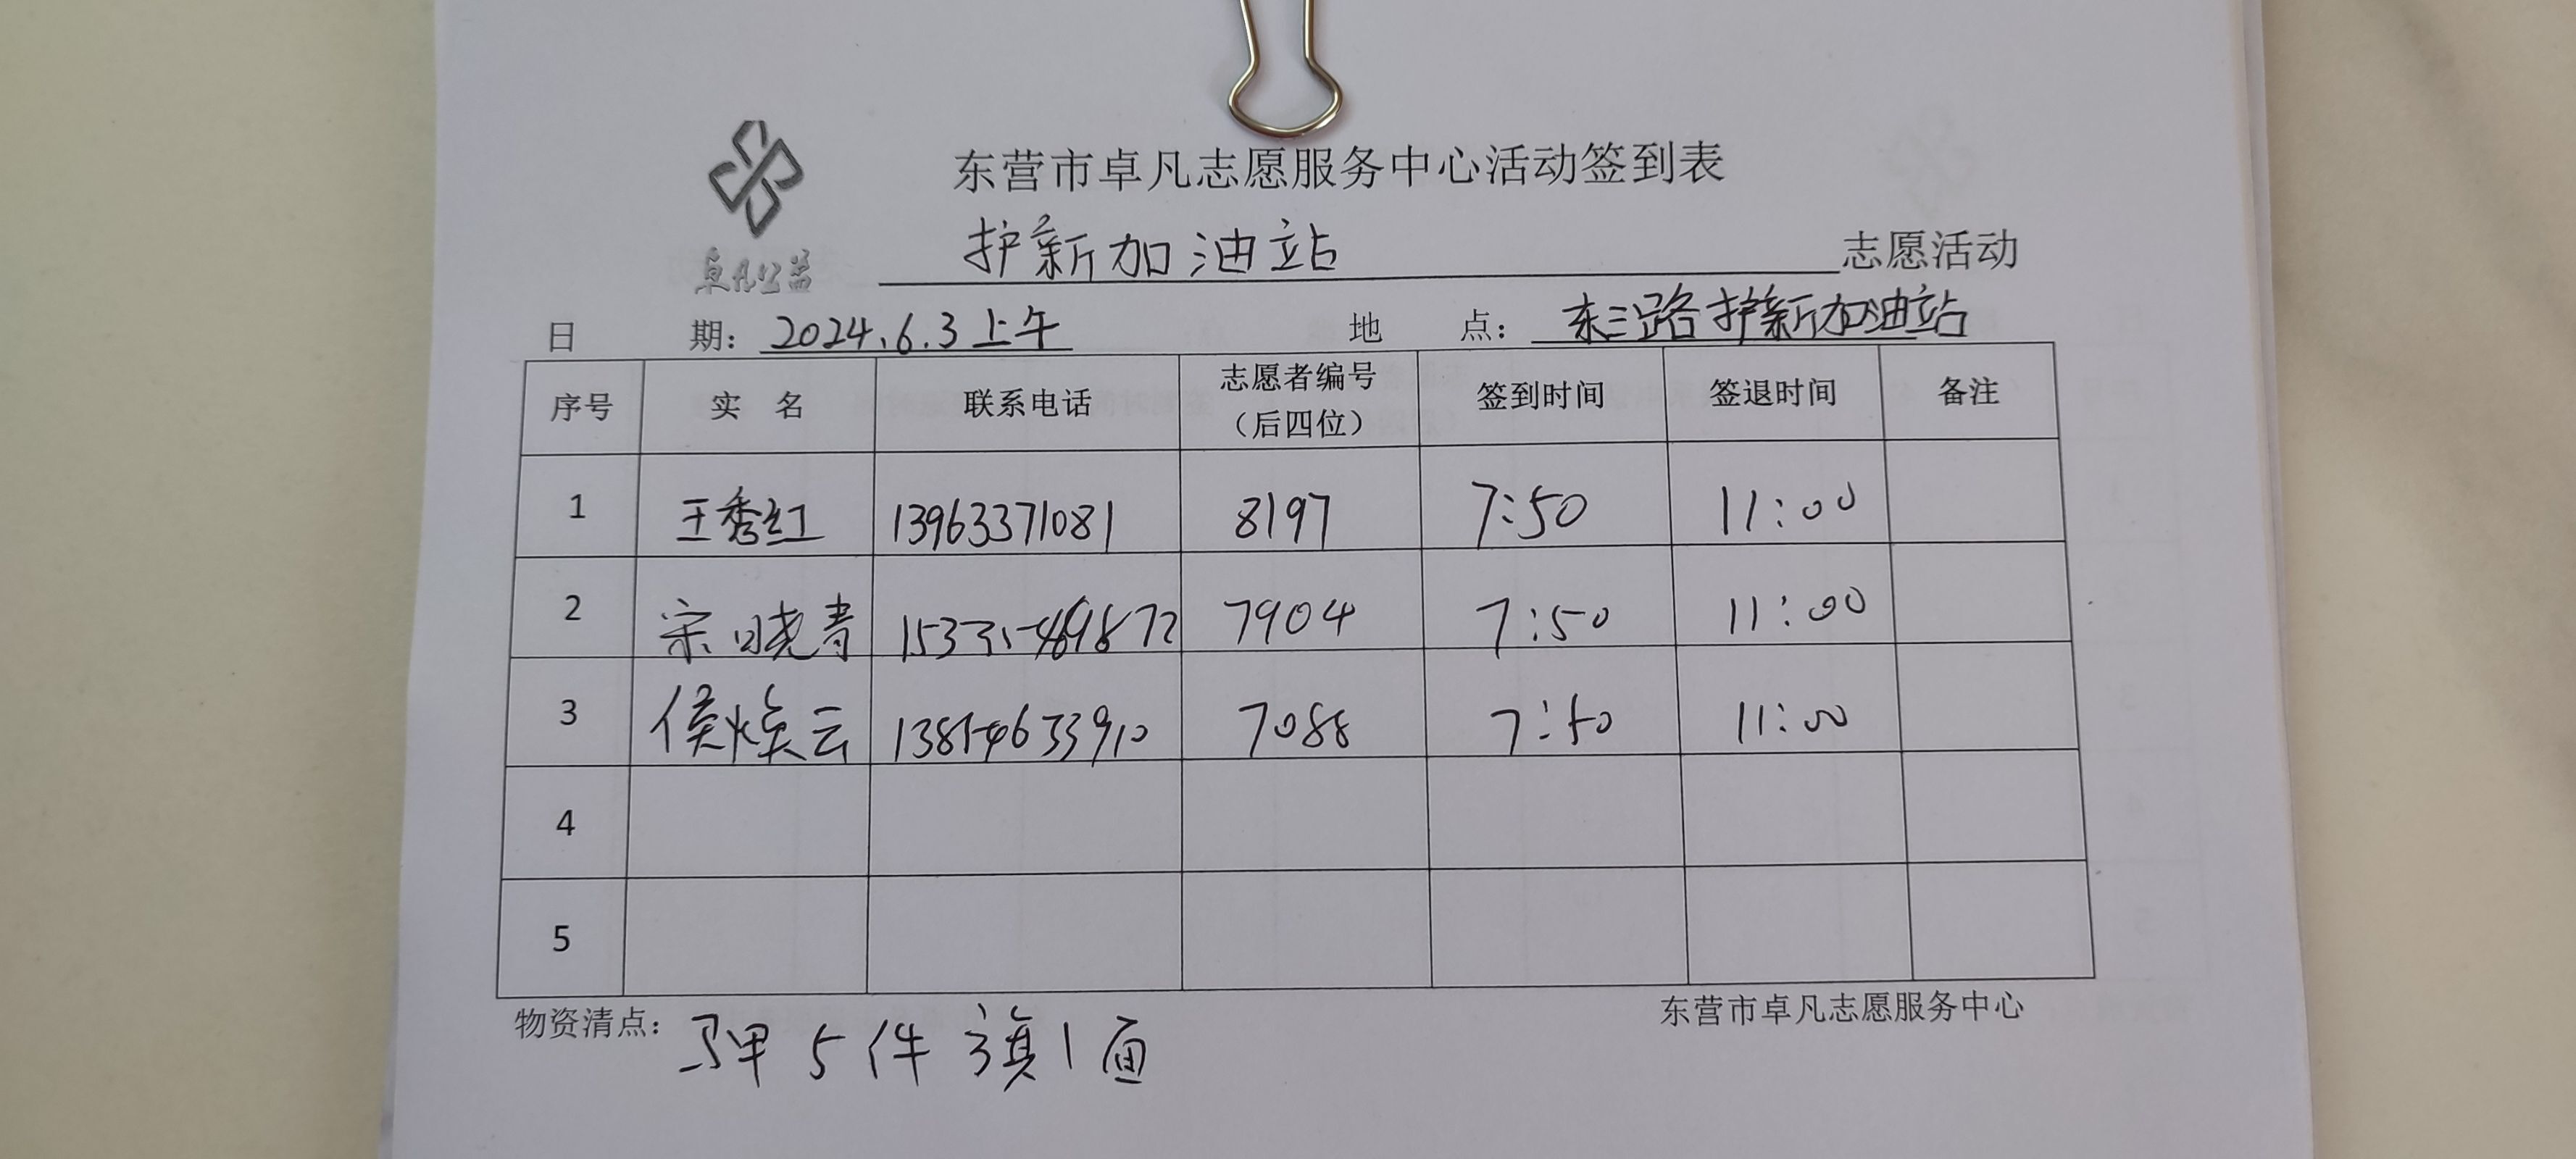 东营市卓凡志愿服务中心活动签到表
卓凡公益
护新加油站 志愿活动
日 期：2024.6.3上午 地 点：东三路护新加油站
序号 实 名 联系电话 志愿者编号（后四位） 签到时间 签退时间 备注
1 王秀红 13963371081 8197 7:50 11:00
2 宋晓青 7904 7:50 11:00
3 侯焕云 13854633910 7088 7:50 11:00
4
5
物资清点：马甲5件 旗1面 东营市卓凡志愿服务中心